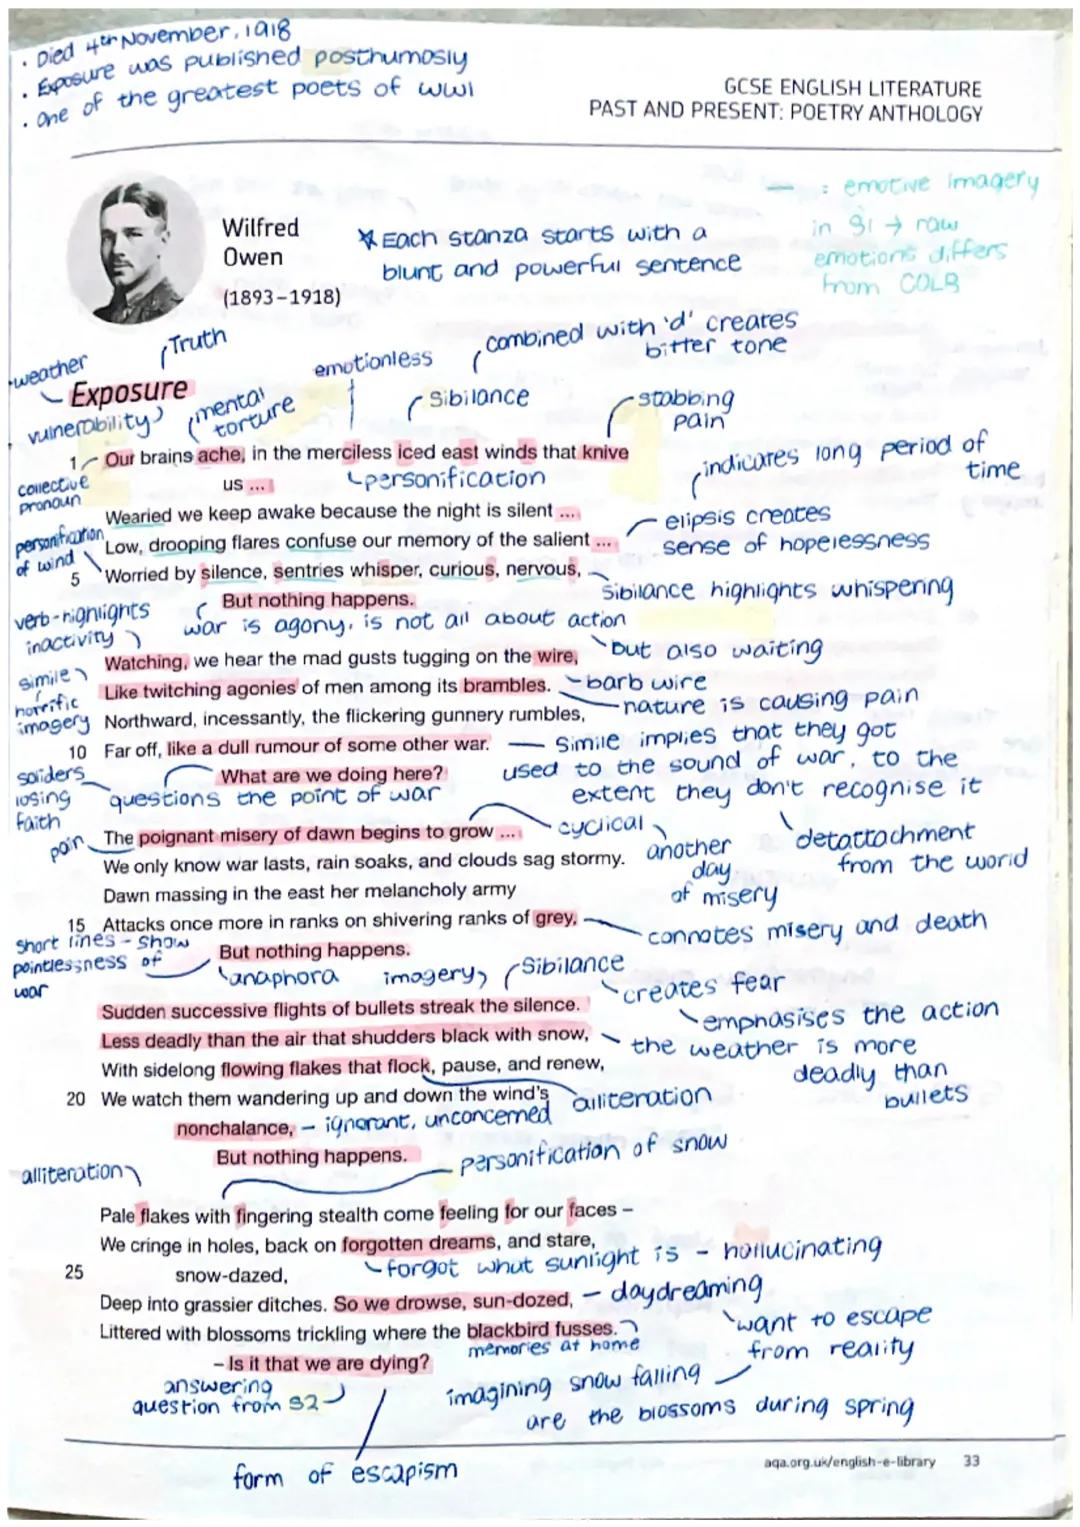 . Died 4th November, 1918
. Exposure was published posthumosly
. one of the greatest poets of WW1
GCSE ENGLISH LITERATURE
PAST AND PRESENT: POETRY ANTHOLOGY
— : emotive imagery
in S1 → raw
emotions differs
from COLB
Wilfred
Owen
(1893–1918)
* Each stanza starts with a
blunt and powerful sentence
Truth
weather
combined with 'd' creates
bitter tone
emotionless
Exposure
vulnerability
mental
torture
Sibilance
stabbing
pain
1 Our brains ache, in the merciless iced east winds that knive
us ...
collective
pronoun
personification
indicates long period of
time
Wearied we keep awake because the night is silent ...
elipsis creates
sense of hopelessness
personification
of wind
Low, drooping flares confuse our memory of the salient ...
5 Worried by silence, sentries whisper, curious, nervous,
sibilance highlights whispering
But nothing happens.
verb-highlights
inactivity
war is agony, is not all about action
but also waiting
Watching, we hear the mad gusts tugging on the wire,
simile
horrific
imagery
Like twitching agonies of men among its brambles.
barb wire
nature is causing pain
Northward, incessantly, the flickering gunnery rumbles,
10 Far off, like a dull rumour of some other war.
Simile implies that they got
used to the sound of war, to the
extent they don't recognise it
What are we doing here?
soliders
losing
faith
questions the point of war
cyclical
detattachment
from the world
pain
The poignant misery of dawn begins to grow ...
another
day
of misery
We only know war lasts, rain soaks, and clouds sag stormy.
Dawn massing in the east her melancholy army
15 Attacks once more in ranks on shivering ranks of grey,
connotes misery and death
short lines - show
pointlessness of
war
But nothing happens.
anaphora
imagery
Sibilance
creates fear
Sudden successive flights of bullets streak the silence.
emphasises the action
Less deadly than the air that shudders black with snow,
the weather is more
deadly than
bullets
With sidelong flowing flakes that flock, pause, and renew,
20 We watch them wandering up and down the wind's
alliteration
nonchalance,
– ignorant, unconcerned
But nothing happens.
personification of snow
alliteration
Pale flakes with fingering stealth come feeling for our faces –
We cringe in holes, back on forgotten dreams, and stare,
25 snow-dazed,
forgot what sunlight is - hallucinating
Deep into grassier ditches. So we drowse, sun-dozed,
– daydreaming
want to escape
from reality
Littered with blossoms trickling where the blackbird fusses.
memories at home
– Is it that we are dying?
answering
question from S2
imagining snow falling
are the blossoms during spring
form of escapism
aqa.org.uk/english-e-library 33